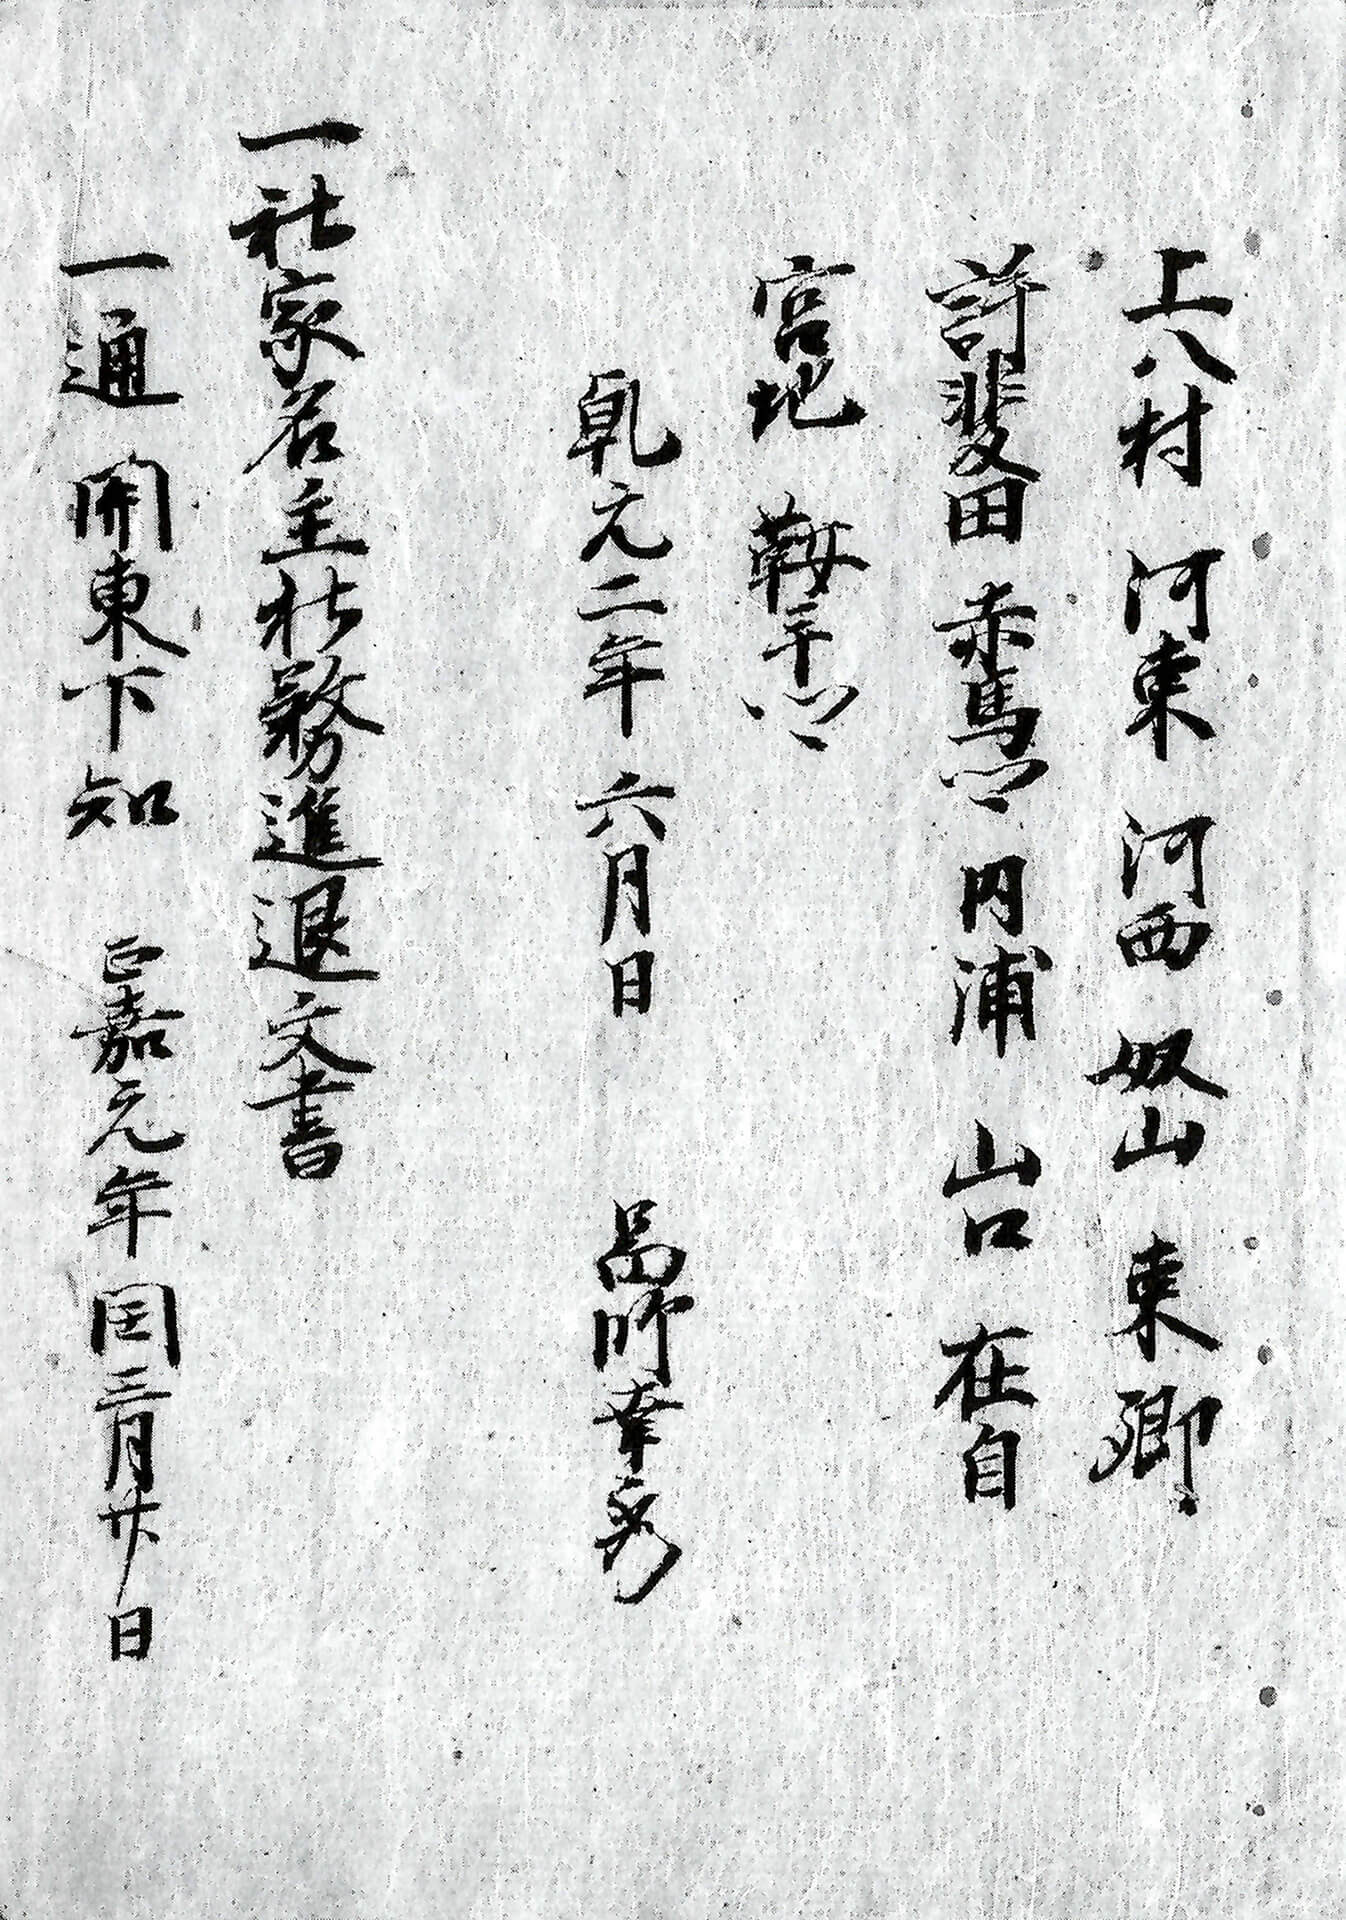 上八村 河東 河西 奴山 東郷
許斐田 赤馬〻 内浦 山口 在自
宮地 鞍手〻
乾元二年六月日 図師幸秀
一社家名主社務進退文書
一通 関東下知 正嘉元年閏三月廿日